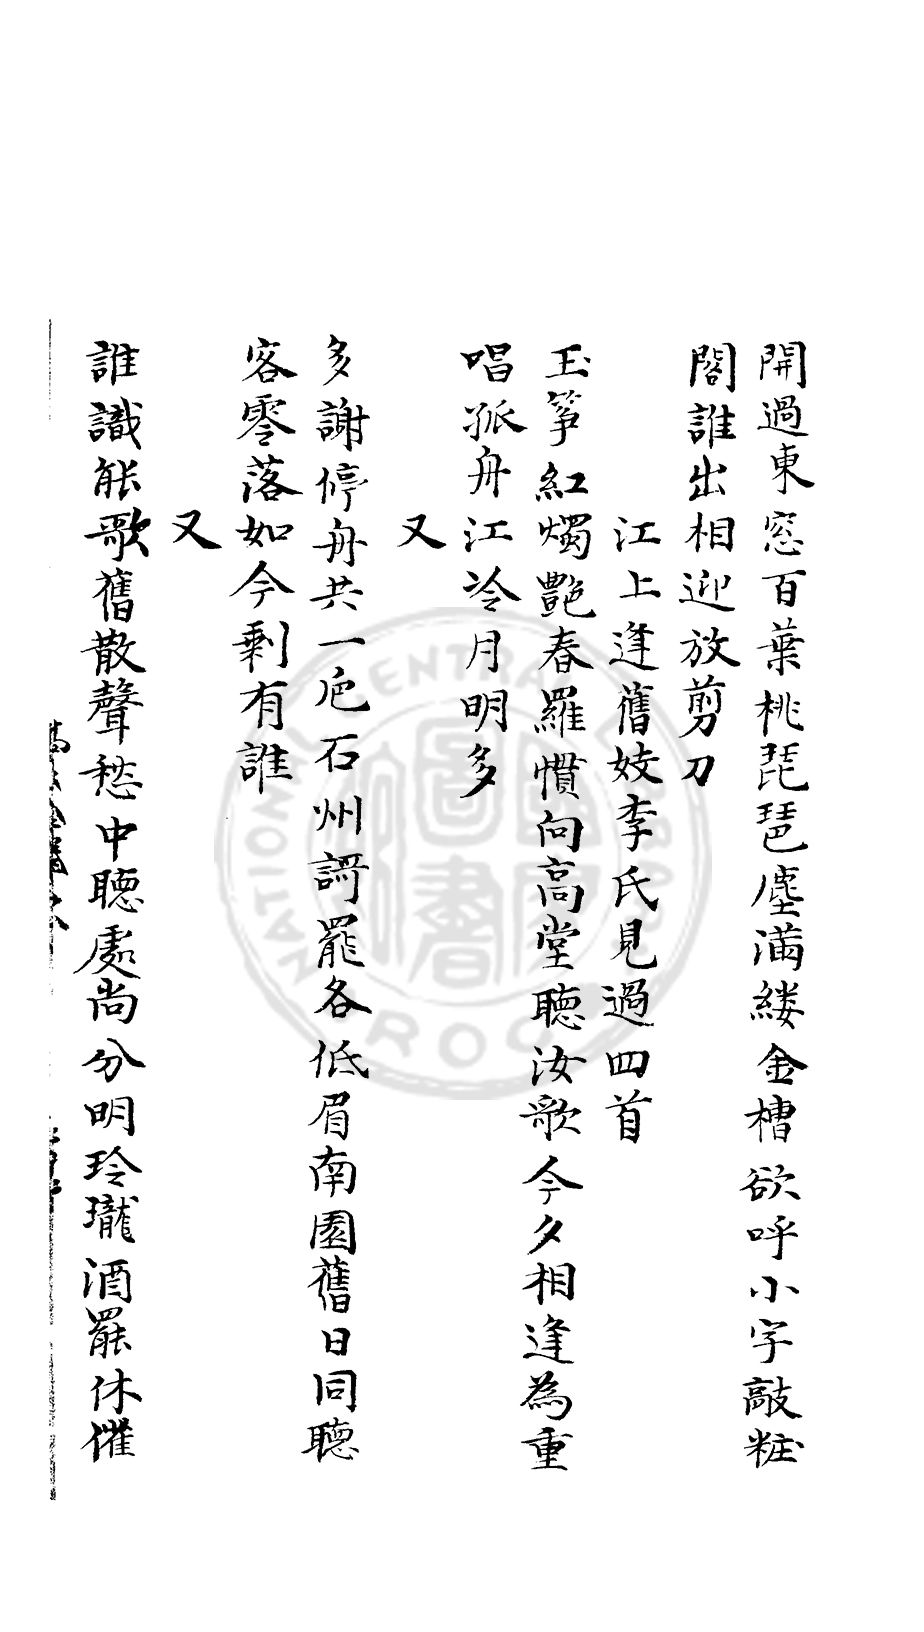 開過東窓百葉桃琵琶塵滿縷金槽欲呼小字敲粧
閣誰出相迎放剪刀
江上逢舊妓李氏見過四首
玉箏紅燭艷春羅慣向高堂聽汝歌今夕相逢為重
唱孤舟江冷月明多
又
多謝停舟共一巵石州謌罷各低眉南園舊日同聽
客零落如今剩有誰
又
誰識能歌舊散聲愁中聽處尚分明玲瓏酒罷休催
NATIONAL CENTRAL